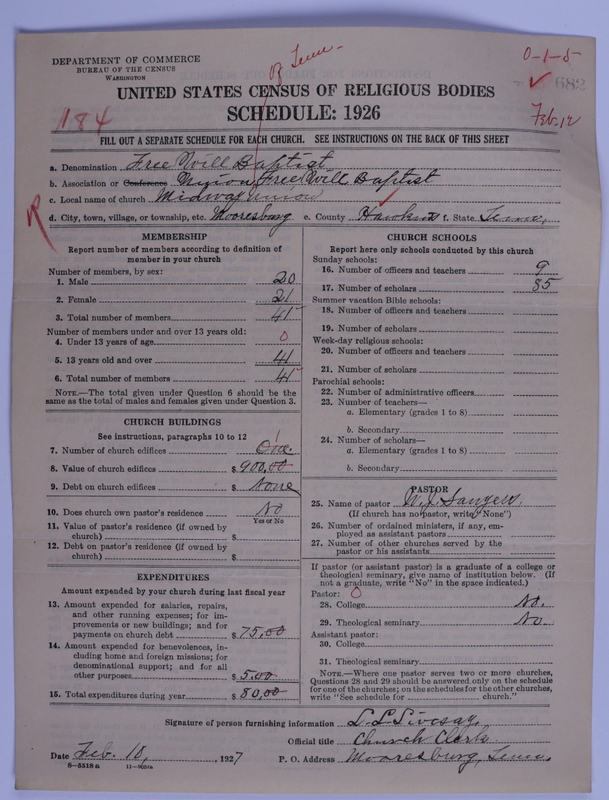 of Tenn.
0-1-5
DEPARTMENT OF COMMERCE
BUREAU OF THE CENSUS
WASHINGTON
682
UNITED STATES CENSUS OF RELIGIOUS BODIES
184
SCHEDULE: 1926
Feb. 12
FILL OUT A SEPARATE SCHEDULE FOR EACH CHURCH. SEE INSTRUCTIONS ON THE BACK OF THIS SHEET
a. Denomination Free Will Baptist
b. Association or Conference Union Free Will Baptist
c. Local name of church Midway union
R d. City, town, village, or township, etc. Mooresburg e. County Hawkins f. State Tenn.
MEMBERSHIP
Report number of members according to definition of
member in your church
Number of members, by sex:
1. Male 20
2. Female 21
3. Total number of members 41
Number of members under and over 13 years old:
4. Under 13 years of age 0
5. 13 years old and over 41
6. Total number of members 41
NOTE.—The total given under Question 6 should be the
same as the total of males and females given under Question 3.
CHURCH BUILDINGS
See instructions, paragraphs 10 to 12
7. Number of church edifices One. 1
8. Value of church edifices $900.00
9. Debt on church edifices $ None
10. Does church own pastor's residence No
Yes or No
11. Value of pastor's residence (if owned by
church) $
12. Debt on pastor's residence (if owned by
church) $
EXPENDITURES
Amount expended by your church during last fiscal year
13. Amount expended for salaries, repairs,
and other running expenses; for im-
provements or new buildings; and for
payments on church debt $75.00
14. Amount expended for benevolences, in-
cluding home and foreign missions; for
denominational support; and for all
other purposes $5.00
15. Total expenditures during year $80.00
CHURCH SCHOOLS
Report here only schools conducted by this church
Sunday schools:
16. Number of officers and teachers 9
17. Number of scholars 85
Summer vacation Bible schools:
18. Number of officers and teachers
19. Number of scholars
Week-day religious schools:
20. Number of officers and teachers
21. Number of scholars
Parochial schools:
22. Number of administrative officers
23. Number of teachers—
a. Elementary (grades 1 to 8)
b. Secondary
24. Number of scholars—
a. Elementary (grades 1 to 8)
b. Secondary
PASTOR
25. Name of pastor
(If church has no pastor, write "None")
26. Number of ordained ministers, if any, em-
ployed as assistant pastors
27. Number of other churches served by the
pastor or his assistants
If pastor (or assistant pastor) is a graduate of a college or
theological seminary, give name of institution below. (If
not a graduate, write "No" in the space indicated.)
Pastor: 0
28. College No.
29. Theological seminary No.
Assistant pastor:
30. College
31. Theological seminary
NOTE.—Where one pastor serves two or more churches,
Questions 28 and 29 should be answered only on the schedule
for one of the churches; on the schedules for the other churches,
write "See schedule for church."
Signature of person furnishing information L. L. Livesay,
Official title Church Clerk
Date Feb. 10, 1927 P. O. Address Mooresburg, Tenn.
8—5518 a